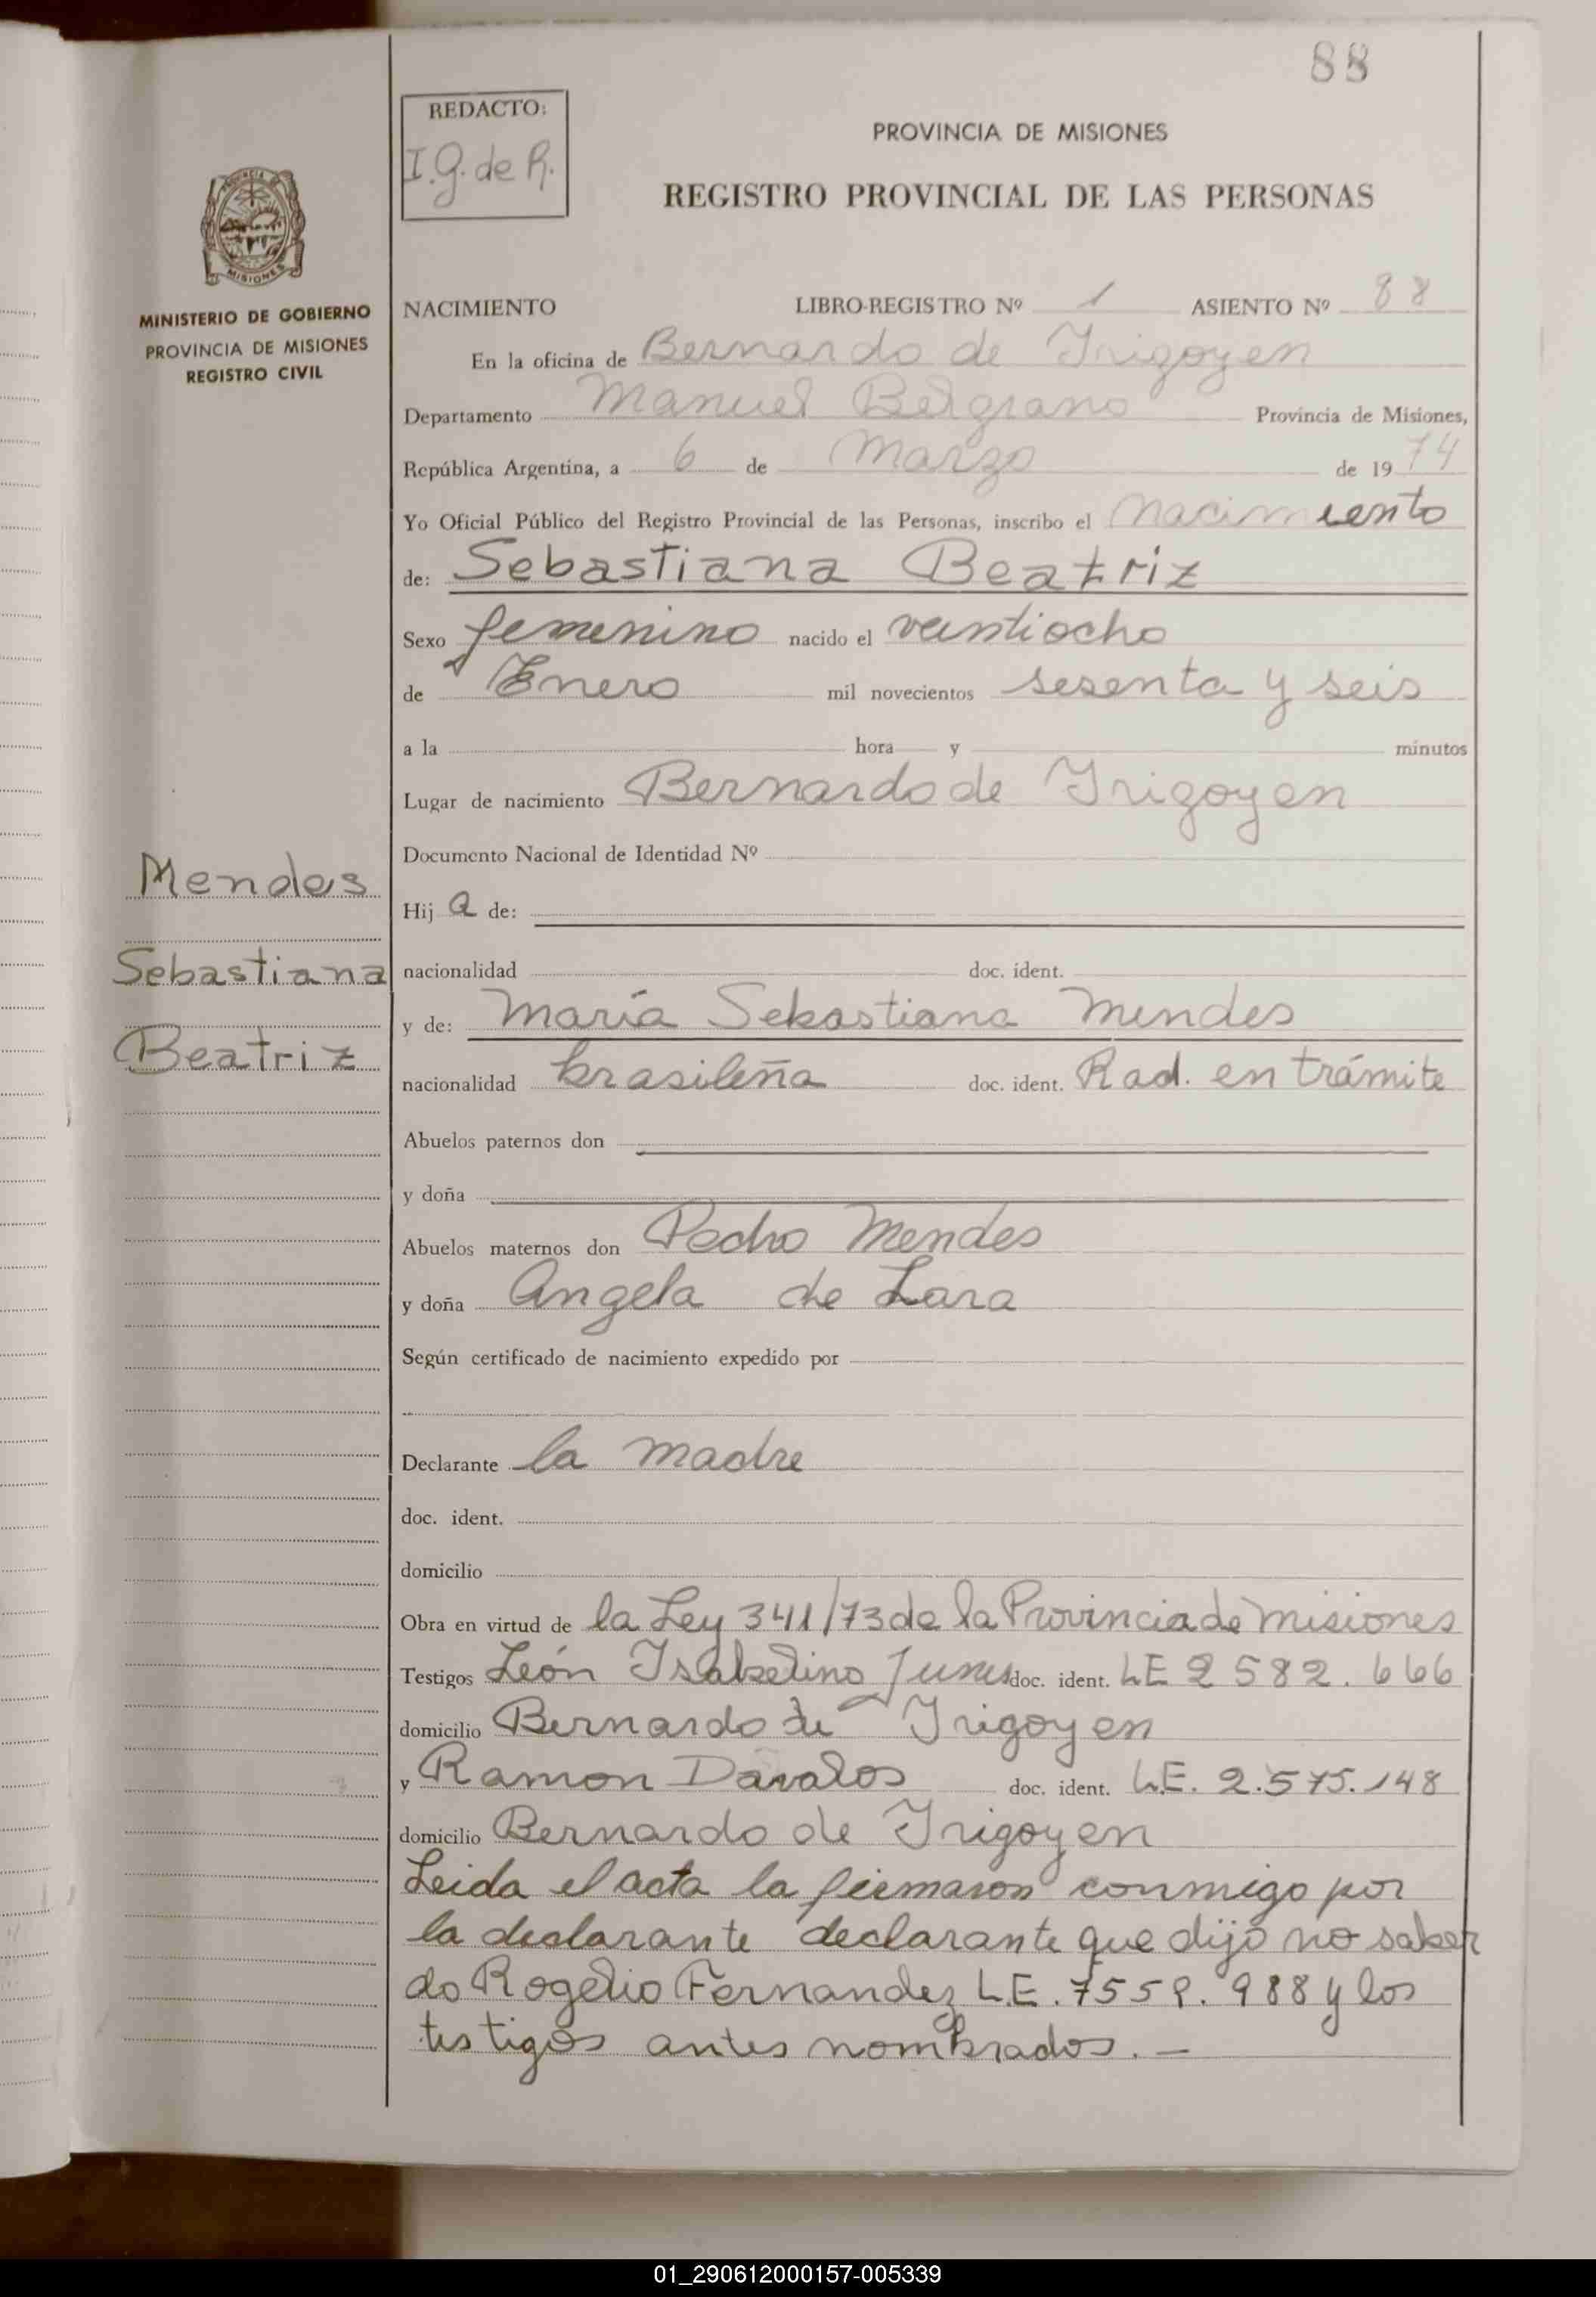 88
REDACTO:
I.G. de R.
PROVINCIA DE MISIONES
REGISTRO PROVINCIAL DE LAS PERSONAS
MISIONES
MINISTERIO DE GOBIERNO
PROVINCIA DE MISIONES
REGISTRO CIVIL
NACIMIENTO LIBRO-REGISTRO Nº 1 ASIENTO Nº 88
En la oficina de Bernardo de Irigoyen
Departamento Manuel Belgrano Provincia de Misiones,
República Argentina, a 6 de Marzo de 1974
Yo Oficial Público del Registro Provincial de las Personas, inscribo el nacimiento
de: Sebastiana Beatriz
Sexo femenino nacido el veintiocho
de Enero mil novecientos sesenta y seis
a la hora y minutos
Lugar de nacimiento Bernardo de Irigoyen
Documento Nacional de Identidad Nº
Mendes
Hij a de:
Sebastiana
nacionalidad doc. ident.
y de: María Sebastiana Mendes
Beatriz
nacionalidad brasileña doc. ident. Rad. en trámite
Abuelos paternos don
y doña
Abuelos maternos don Pedro Mendes
y doña Angela de Lara
Según certificado de nacimiento expedido por
Declarante la madre
doc. ident.
domicilio
Obra en virtud de la Ley 341/73 de la Provincia de Misiones
Testigos León Isabelino doc. ident. LE 2582.666
domicilio Bernardo de Irigoyen
y Ramon Davalos doc. ident. L.E. 2.575.148
domicilio Bernardo de Irigoyen
Leida el acta la firmaron conmigo por
la declarante declarante que dijo no saber
do Rogelio Fernandez L.E. 7559.988 y los
testigos antes nombrados.—
01_290612000157-005339